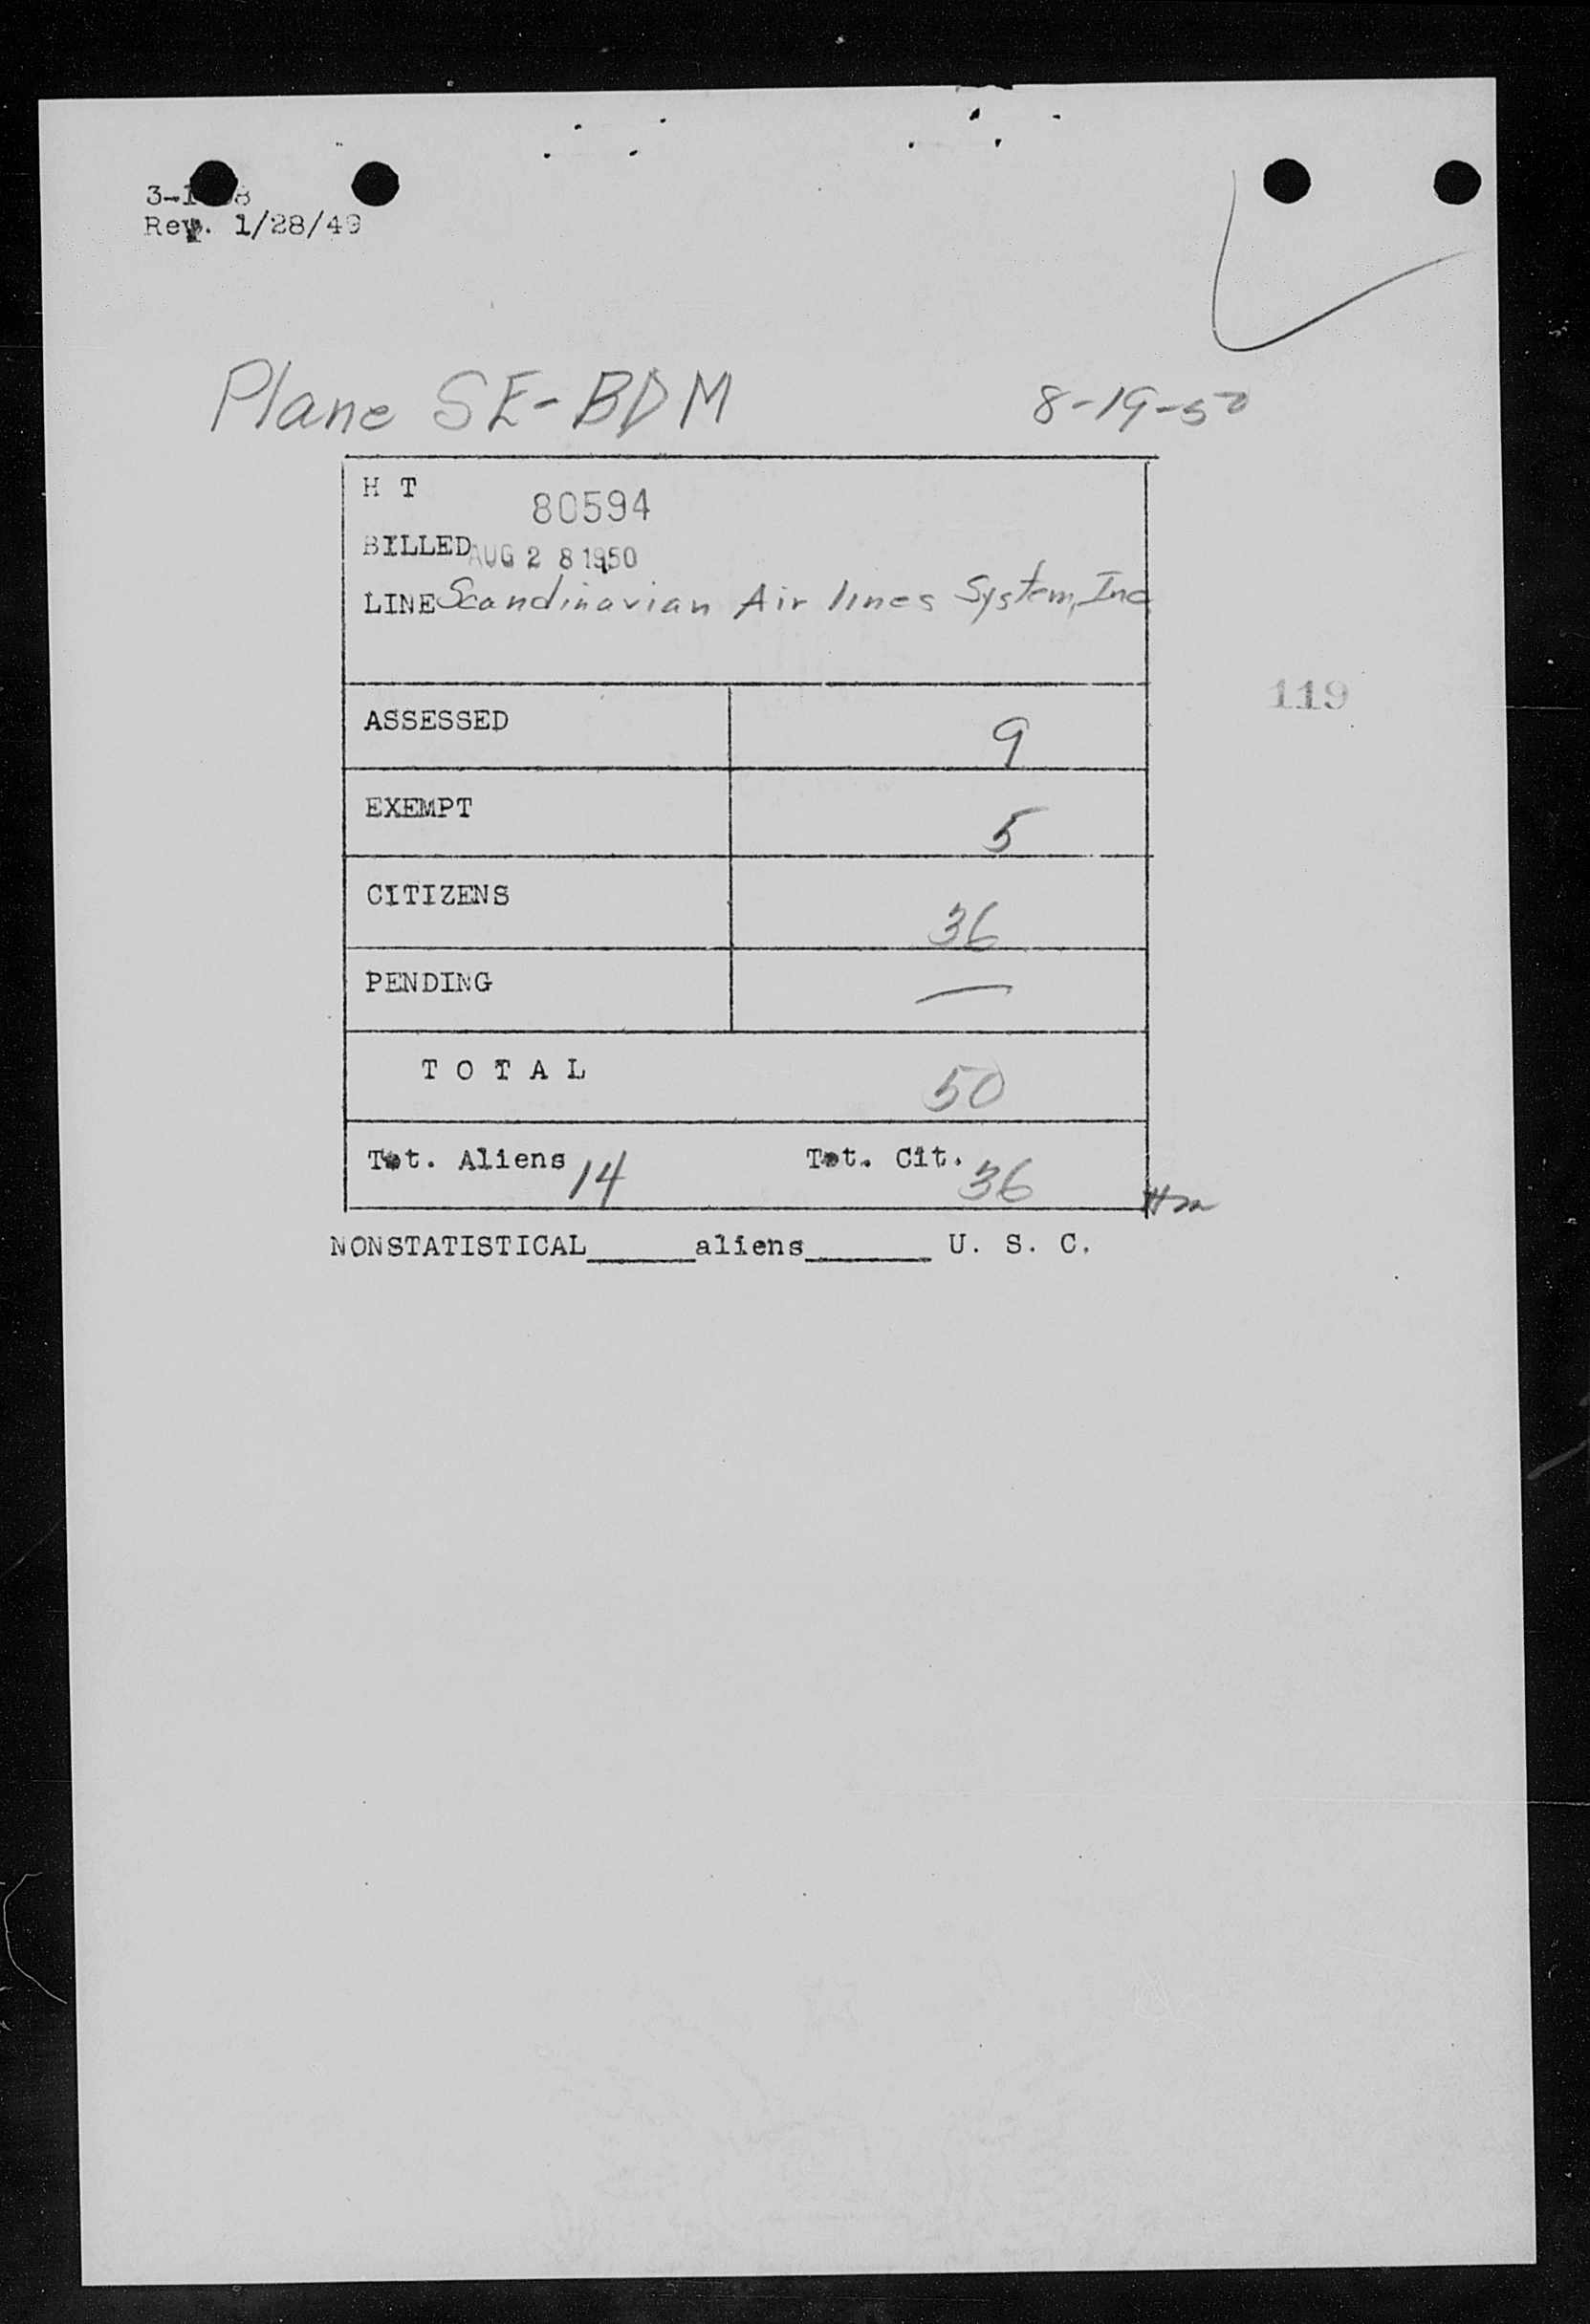 Rev. 1/28/49
Plane SE-BDM 8-19-50
H T 80594
BILLED AUG 28 1950
LINE Scandinavian Air lines System, Inc
119
ASSESSED 9
EXEMPT 5
CITIZENS 36
PENDING —
T O T A L 50
Tot. Aliens 14 Tot. Cit. 36
NONSTATISTICAL______aliens_______ U. S. C.